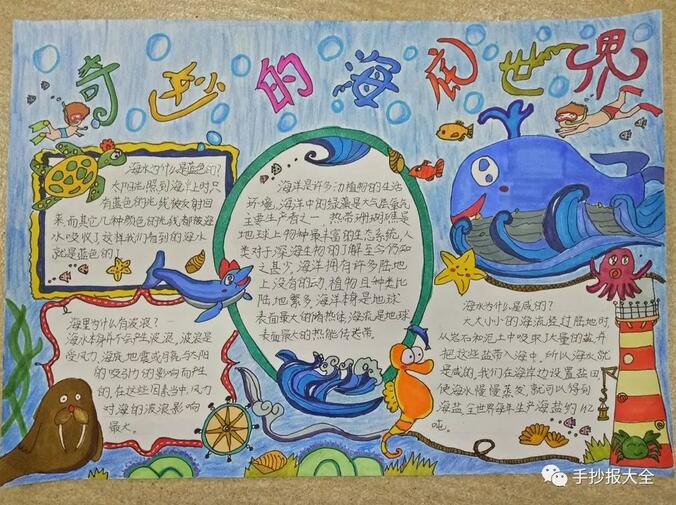 奇妙的海洋世界
海水为什么是蓝色的?
太阳光照到海洋上时只
有蓝色的光线被反射回
来,而其它几种颜色的光线都被海
水吸收了这样我们看到的海水
就是蓝色的。
海里为什么有波浪?
海水本身并不会产生波浪,波浪是
受风力、海底地震或月亮与太阳
的吸引力的影响而产生
的,在这些因素当中,风力
对海的波浪影响
最大。
海洋是许多动植物的生活
环境,海洋中的绿藻是大气层氧气
主要生产者之一,热带珊瑚礁是
地球上物种最丰富的生态系统,人
类对于深海生物的了解至今仍知
之甚少,海洋拥有许多陆地
上没有的动、植物,且种类比
陆地繁多,海洋本身是地球
表面最大的储热体,海流是地球
表面最大的热能传送带。
海水为什么是咸的?
大大小小的海流经过陆地时,
从岩石和泥土中吸取了大量的盐并
把这些盐带入海中,所以海水就
是咸的,我们在海岸边设置盐田
使海水慢慢蒸发,就可以得到
海盐,全世界每年生产海盐约
吨。
手抄报大全